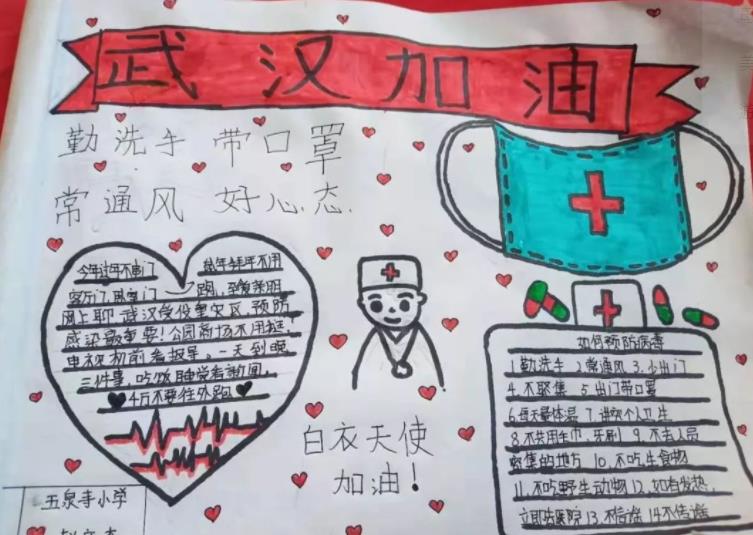 武汉加油
勤洗手 带口罩
常通风 好心态.
今年过年不串门
网上聊 武汉受役重灾区,预防
感染最重要!公园商场不用挺
电视机前看报导。一天到晚
三件事,吃饭睡觉看新闻,
4万不要往外跑
白衣天使
加油!
如何预防病毒
1勤洗手 2.常通风 3.少出门
4.不聚集 5出门带口罩
6每天量体温 7.讲究个人卫生
8.不共用毛巾,牙刷 9.不去人员
密集的地方 10.不吃生食物
11.不吃野生动物 12.如有发热,
立即去医院 13.不信谣 14不传谣
五泉寺小学